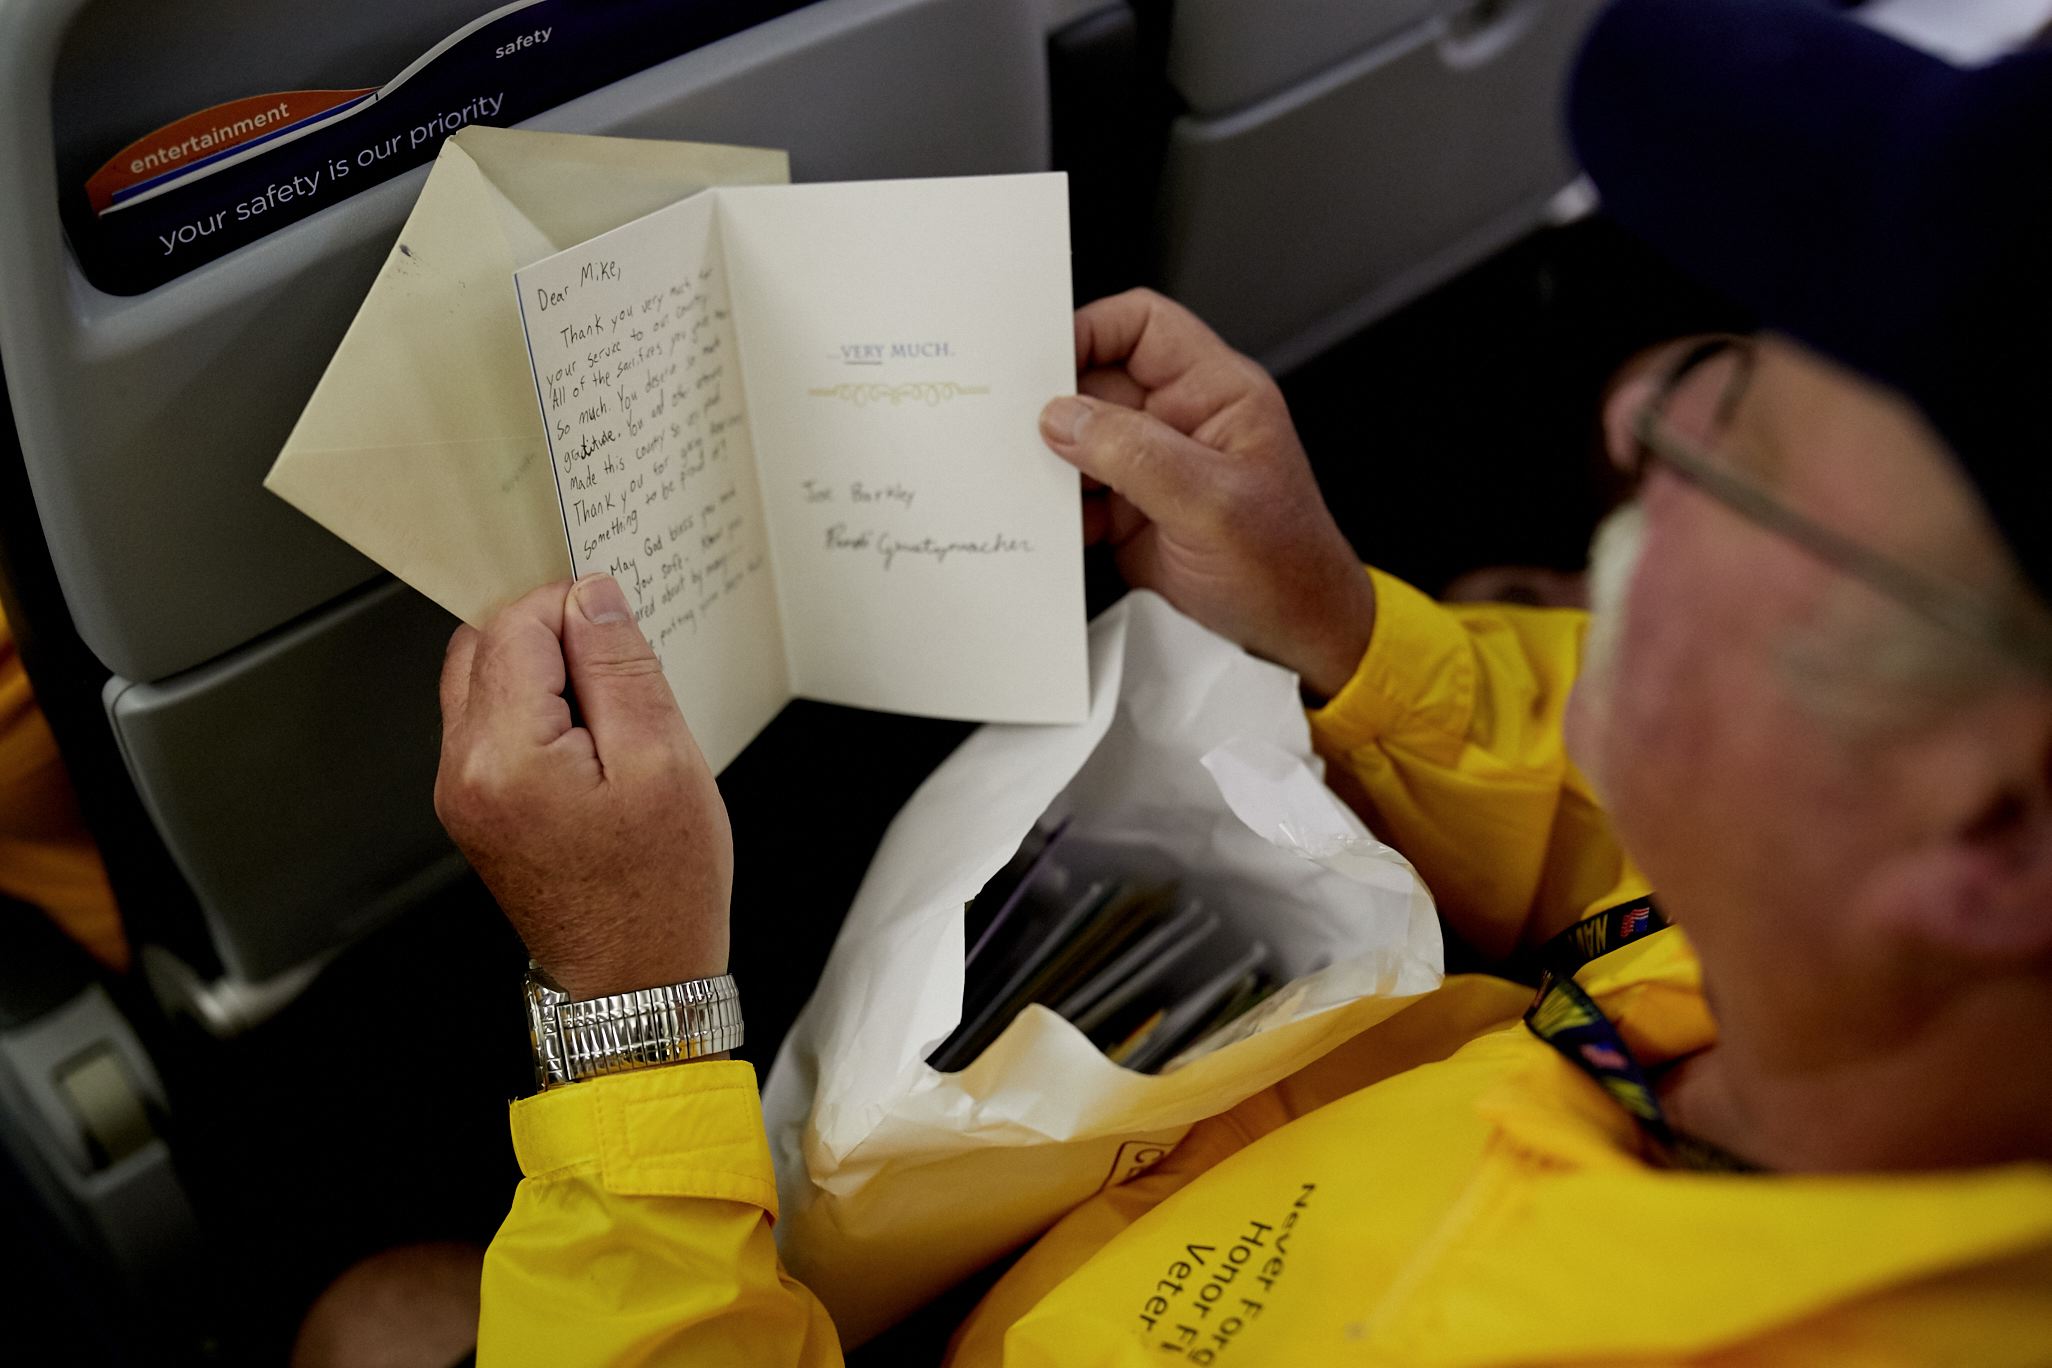 safety
entertainment
your safety is our priority
Dear Mike,
Thank you very much for
your service to our country.
All of the sacrifices you
so much. You deserve so much
gratitude. You and other
made this country so
Thank you for
something to be proud of!
May God bless you and
you safe.
about by many
putting your
...VERY MUCH.
Joe Barkley
NAV
Never Forg
Honor Fl
Veter